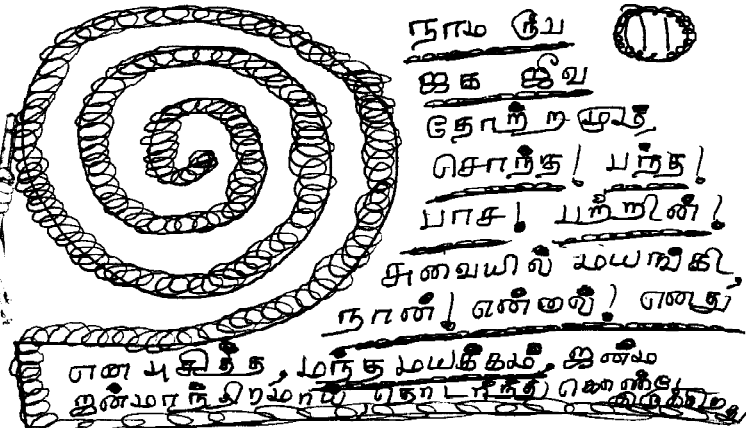 நாம ரூப
ஜக ஜீவ
தோற்றமும்
சொந்த! பந்த!
பாச! பற்றின்!
சுவையில் மயங்கி,
நான்! என்னல்! எனது,
என புசித்த, மந்த மயக்கம், ஜன்ம
ஜன்மாந்திரமாய் தொடர்ந்து கொண்டே இருக்கிறது